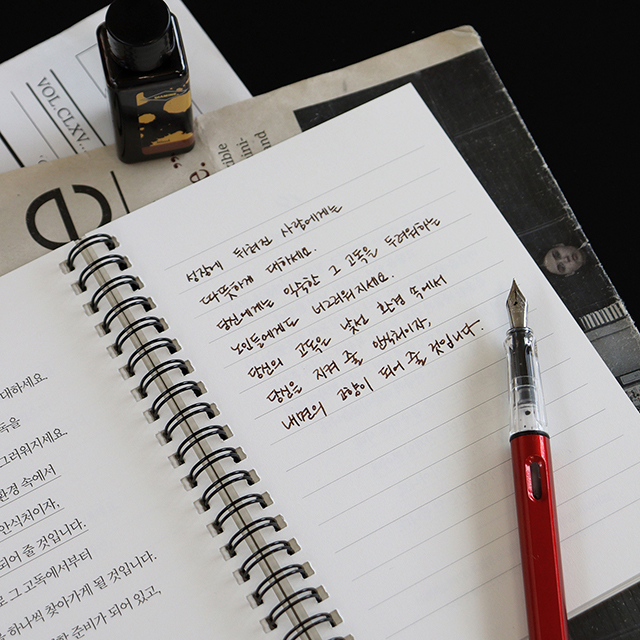 VOL.CLXV..
e
성장에 뒤처진 사람에게는
따뜻하게 대하세요.
당신에게는 익숙한 그 고독을 두려워하는
노인들에게도 너그러워지세요.
당신의 고독은 낯선 환경 속에서
당신을 지켜 줄 안식처이자,
내면의 고향이 되어 줄 것입니다.
대하세요.
독을
그러워지세요.
환경 속에서
안식처이자,
되어 줄 것입니다.
로 그 고독에서부터
하나씩 찾아가게 될 것입니다.
준비가 되어 있고,